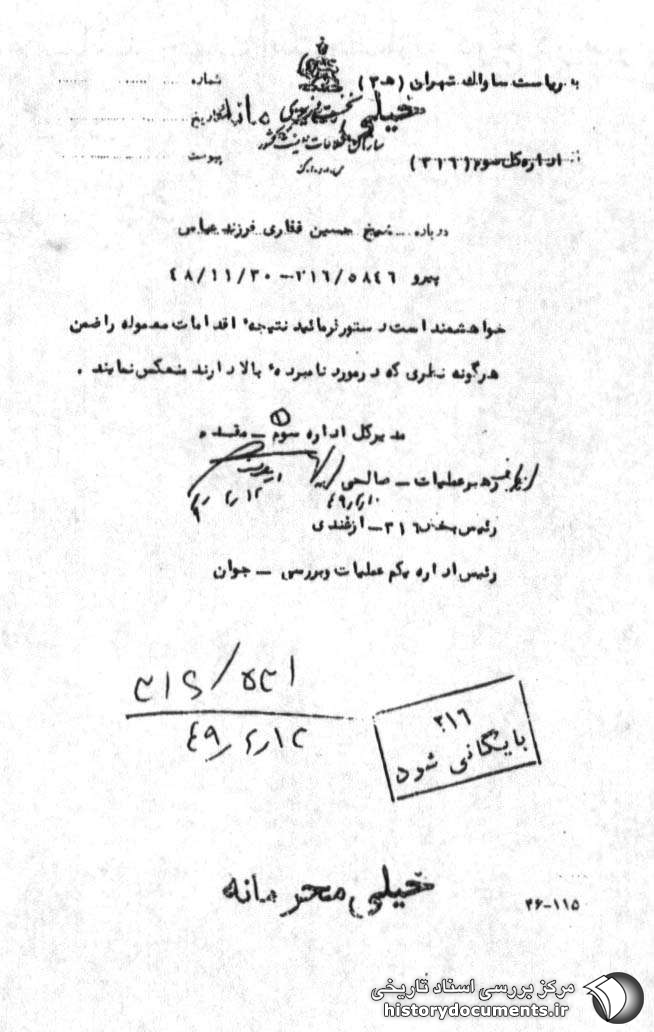 به ریاست ساواک تهران (ه‍ ۳)
شماره
خیلی محرمانه
نخست وزیری
تاریخ
سازمان اطلاعات و امنیت کشور
س.ا.و.ا.ک
اداره کل سوم (۳۱۶)
پیوست
درباره شیخ حسین غفاری فرزند عباس
پیرو ۳۱۶/۵۸۴۶ - ۴۸/۱۱/۳۰
خواهشمند است دستور فرمائید نتیجه اقدامات معموله را ضمن
هرگونه نظری که در مورد نامبرده بالا دارند منعکس نمایند .
مدیرکل اداره سوم - مقدم
رهبر عملیات - صالحی
۴۹/۲/۱۰
۲/۱۲
رئیس بخش ۳۱۶ - ازغندی
رئیس اداره یکم عملیات و بررسی - جوان
۳۱۶/۵۳۱
۴۹/۲/۱۲
۳۱۶
بایگانی شود
خیلی محرمانه
۳۶-۱۱۵
مرکز بررسی اسناد تاریخی
historydocuments.ir